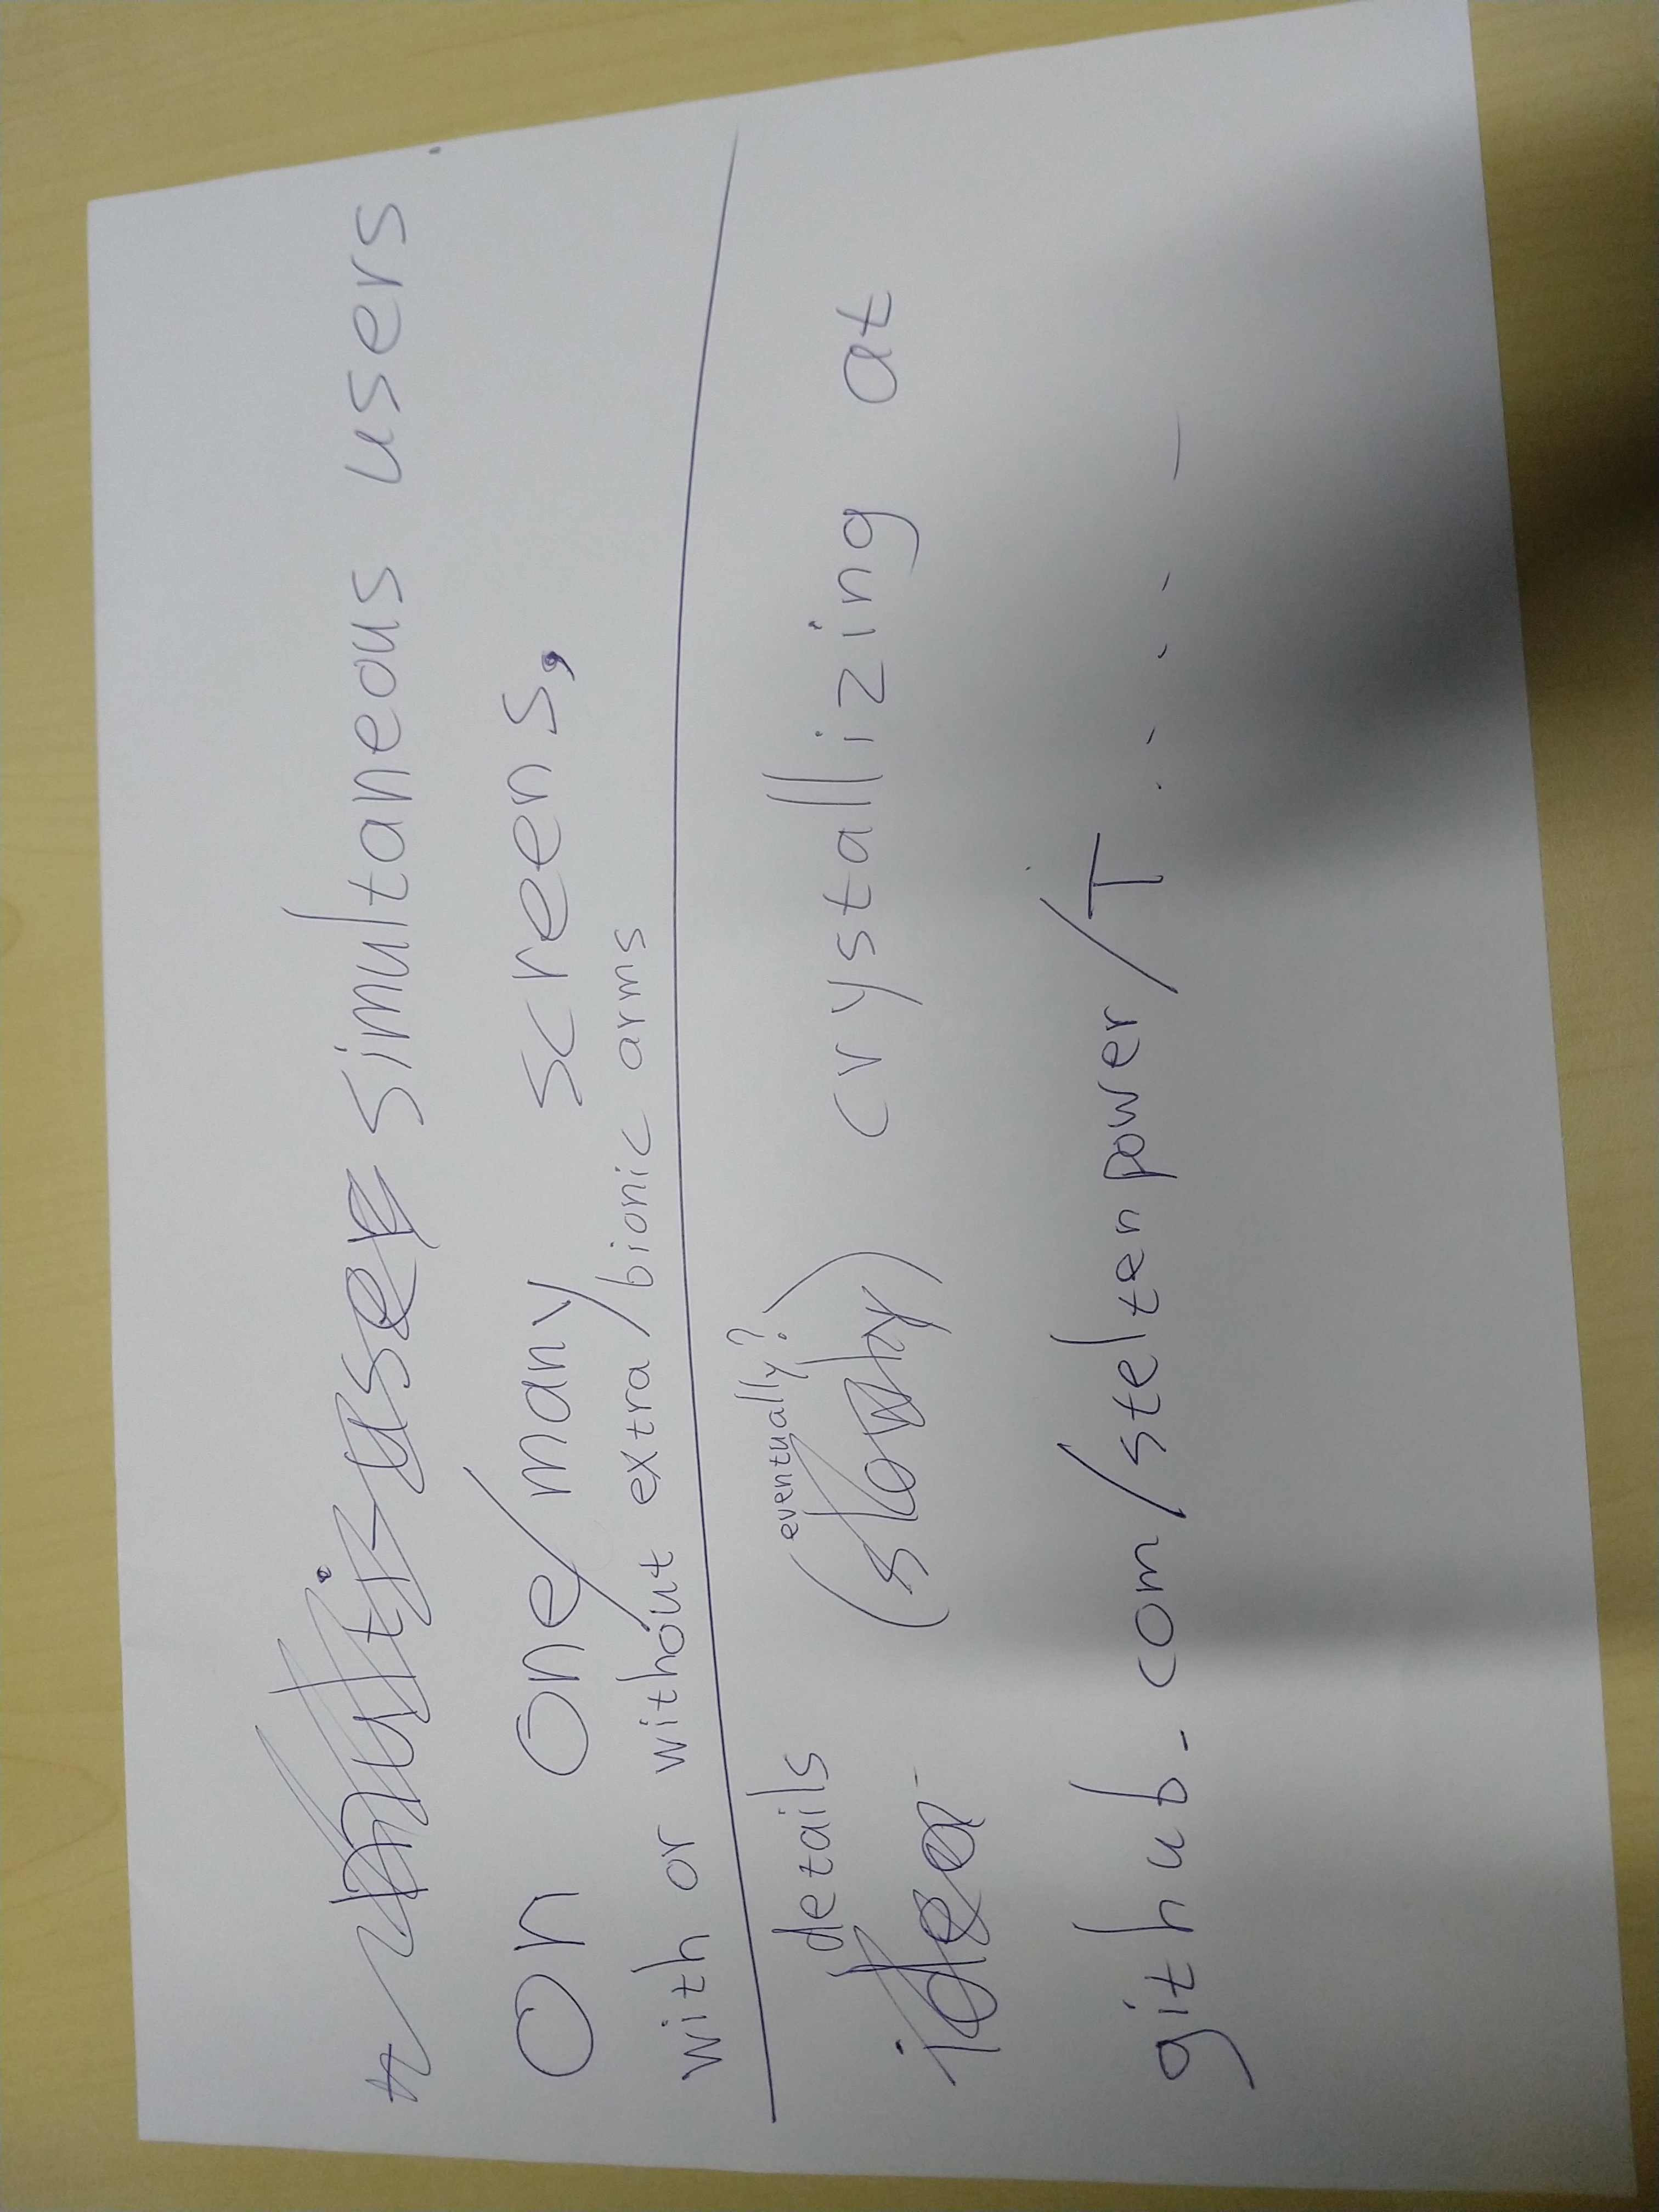 multi-user simultaneous users
on one/many screens,
with or without extra/bionic arms
details (eventually?)
idea (slowly) crystallizing at
github.com/steltenpower/T.....